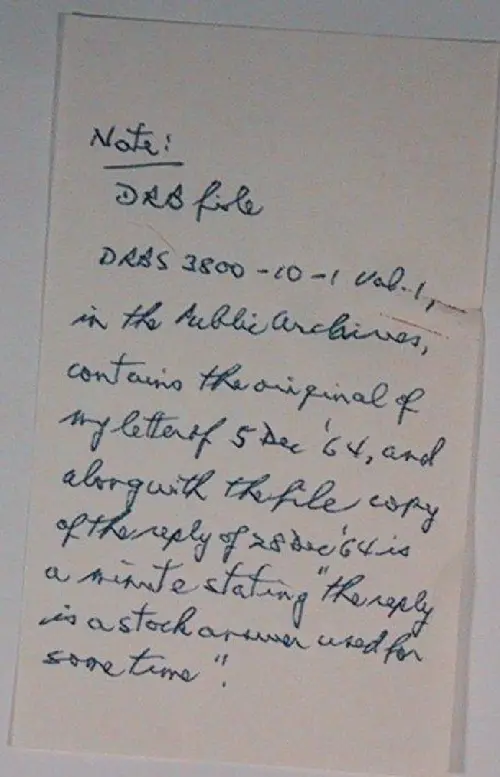 Note:
DRB file
DRBS 3800-10-1 Vol. 1,
in the Public Archives,
contains the original of
my letter of 5 Dec '64, and
along with the file copy
of the reply of 28 Dec '64 is
a minute stating "the reply
is a stock answer used for
some time".